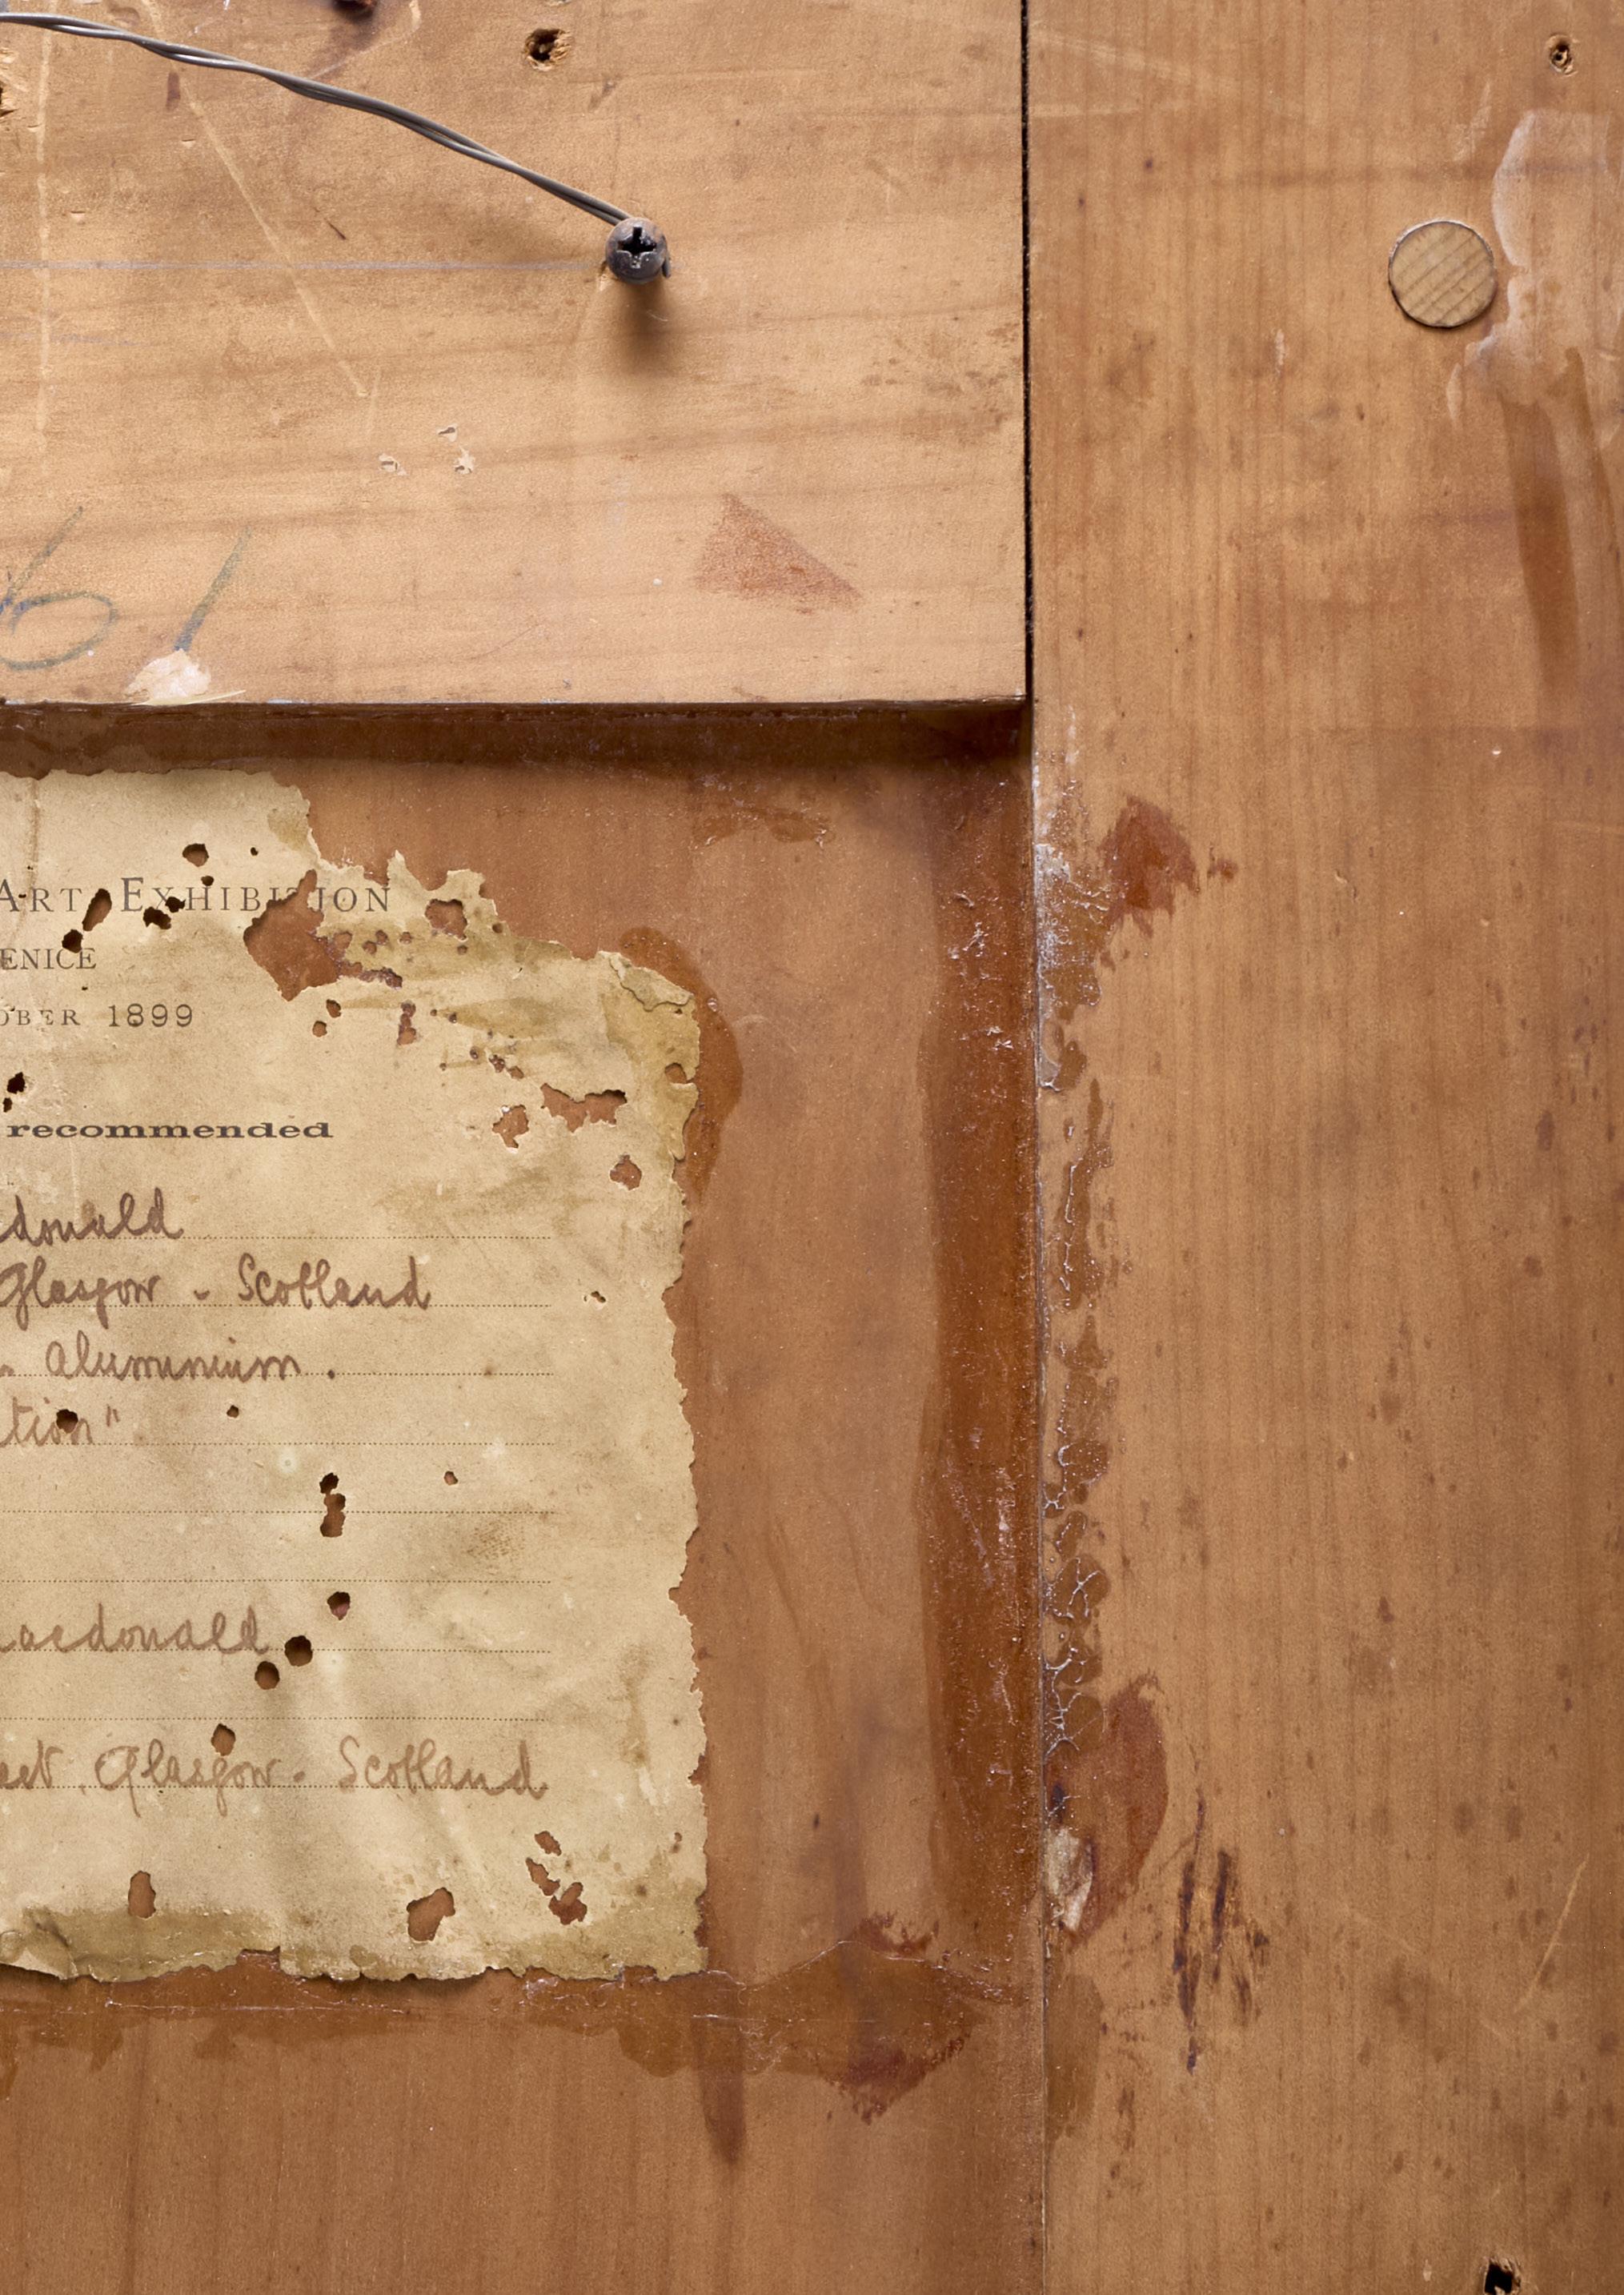 61
ART EXHIBITION
ENICE
OBER 1899
recommended
donald
Glasgow - Scotland
Aluminium.
tion"
acdonald
Glasgow. Scotland